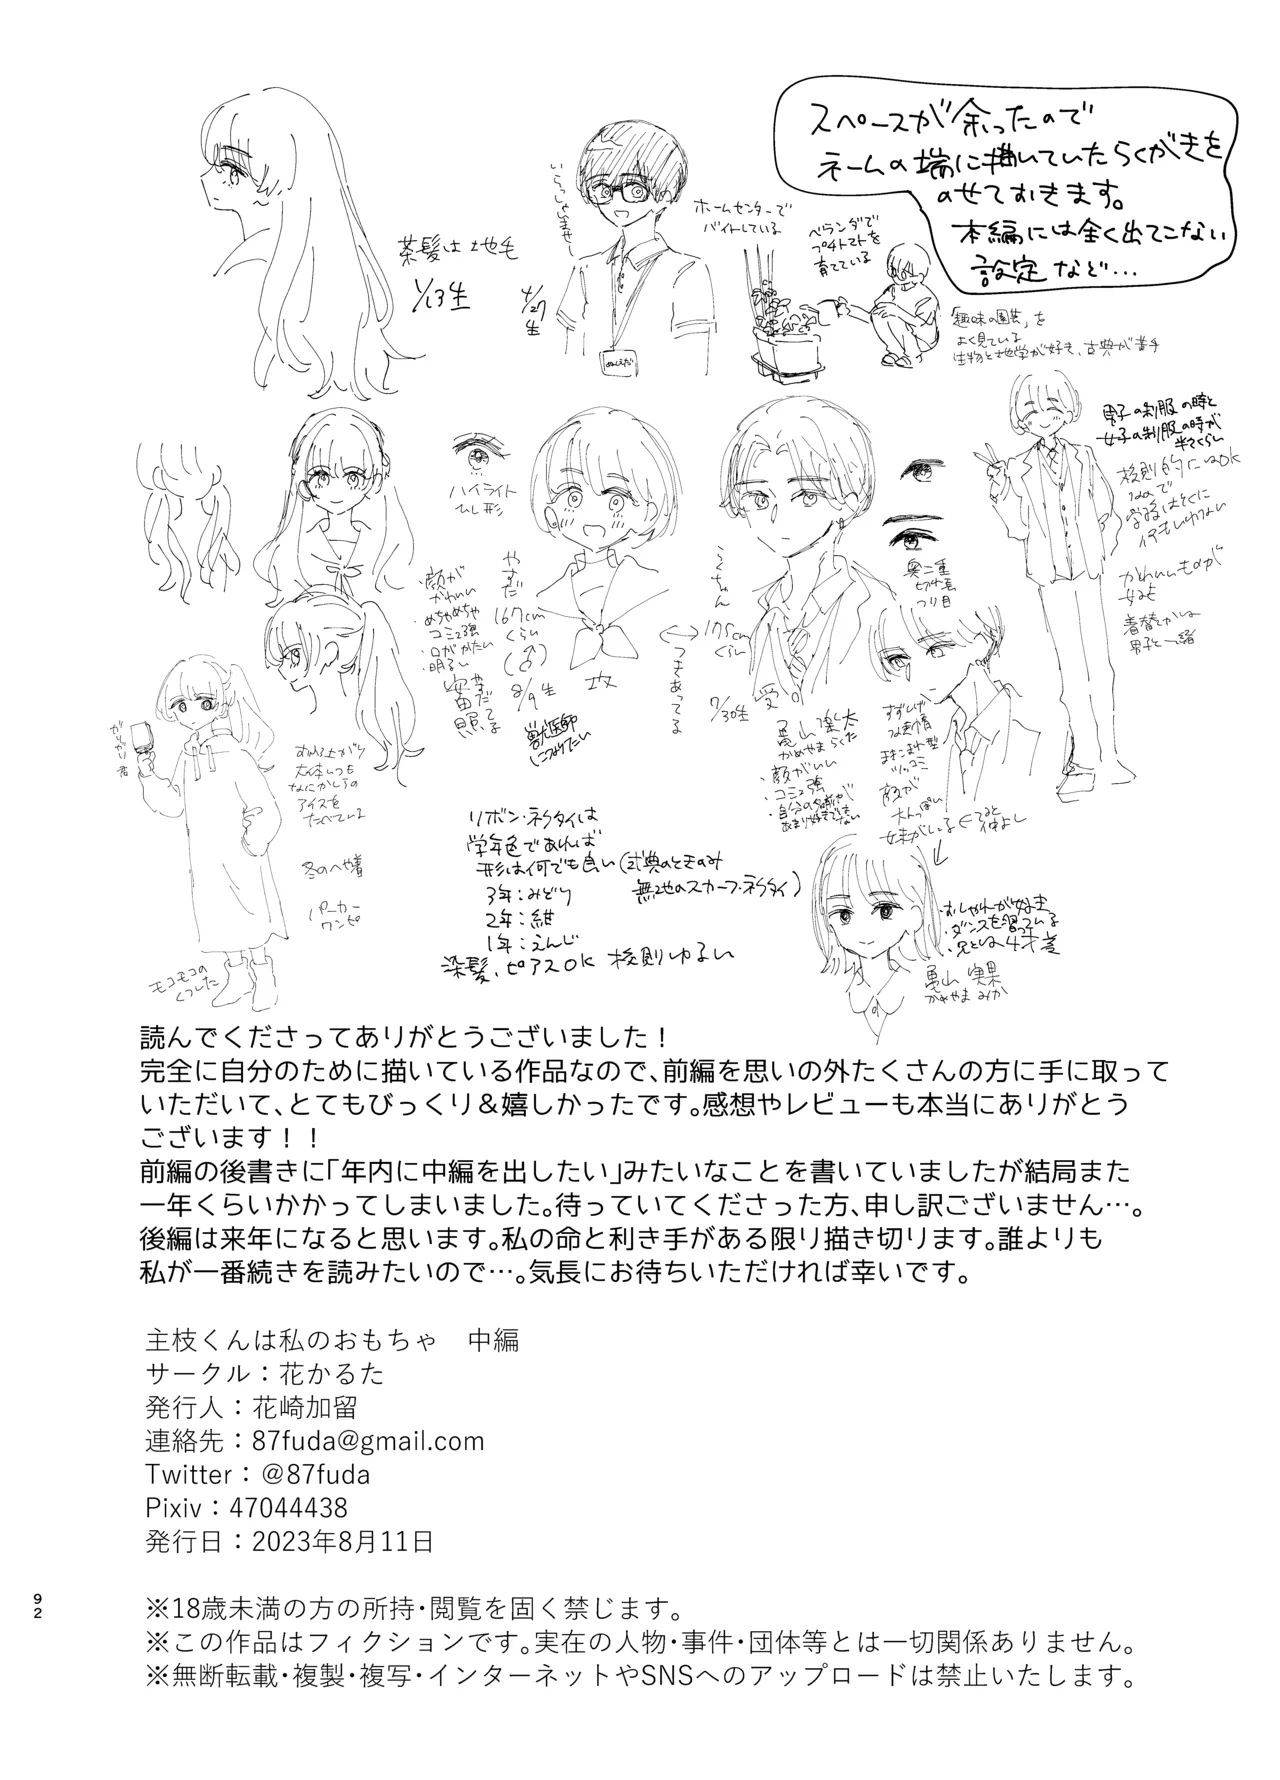 スペースが余ったので
ネームの端に描いていたらくがきを
のせておきます。
本編には全く出てこない
設定など…
いらっしゃいませー
茶髪は地毛
1/13生
4/27生
ホームセンターで
バイトしている
ベランダで
プチトマトを
育てている
「趣味の園芸」を
よく見ている
生物と地学が好き、古典が苦手
男子の制服の時と
女子の制服の時が
半々くらい
校則的にはOK
なので
かわいいものが
好き
着替えとかは
男子と一緒
ハイライト
・顔が
かわいい
・めちゃめちゃ
コミュ強
・口がかたい
・明るい
やすだ
167cm
くらい
(♂)
8/9生
攻
獣医師
になりたい
つきあってる
らくちゃん
175cm
くらい
7/30生
受
奥二重
切れ長
つり目
亀山楽太
かめやまらくた
・顔がいい
・コミュ強
・自分の名前が
あまり好きではない
まきこまれ型
ツッコミ
顔が
大人っぽい
妹がいる
がりがり君
大体いつも
なにかしらの
アイスを
たべている
冬のへや着
パーカー
ワンピ
モコモコの
くつした
リボン・ネクタイは
学年色であれば
形は何でも良い(式典のときのみ
無地のスカーフ・ネクタイ)
3年：みどり
2年：紺
1年：えんじ
染髪、ピアスOK 校則ゆるい
・おしゃれが好き
・ダンスを習っている
・兄とは4才差
亀山 実果
かめやま みか
読んでくださってありがとうございました！
完全に自分のために描いている作品なので、前編を思いの外たくさんの方に手に取って
いただいて、とてもびっくり＆嬉しかったです。感想やレビューも本当にありがとう
ございます！！
前編の後書きに「年内に中編を出したい」みたいなことを書いていましたが結局また
一年くらいかかってしまいました。待っていてくださった方、申し訳ございません…。
後編は来年になると思います。私の命と利き手がある限り描き切ります。誰よりも
私が一番続きを読みたいので…。気長にお待ちいただければ幸いです。
主枝くんは私のおもちゃ　中編
サークル：花かるた
発行人：花崎加留
連絡先：87fuda@gmail.com
Twitter：@87fuda
Pixiv：47044438
発行日：2023年8月11日
※18歳未満の方の所持・閲覧を固く禁じます。
※この作品はフィクションです。実在の人物・事件・団体等とは一切関係ありません。
※無断転載・複製・複写・インターネットやSNSへのアップロードは禁止いたします。
92